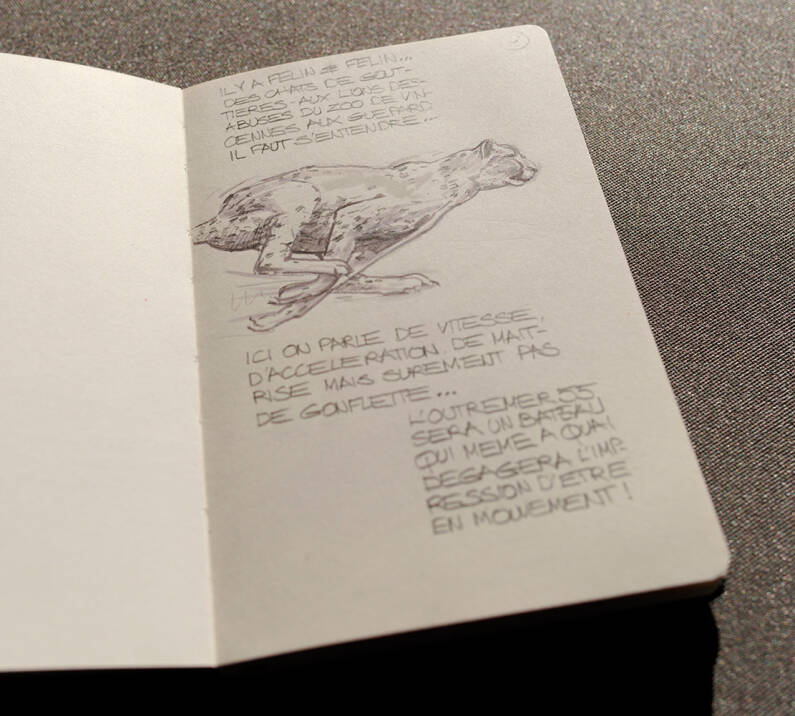 IL Y A FELIN ≠ FELIN...
DES CHATS DE GOUT-
TIERES - AUX LIONS DES-
ABUSES DU ZOO DE VIN-
CENNES AUX GUEPARD
IL FAUT S'ENTENDRE...
ICI ON PARLE DE VITESSE,
D'ACCELERATION, DE MAIT-
RISE MAIS SUREMENT PAS
DE GONFLETTE...
L'OUTREMER 55
SERA UN BATEAU
QUI MEME A QUAI
DEGAGERA L'IMP-
RESSION D'ETRE
EN MOUVEMENT !